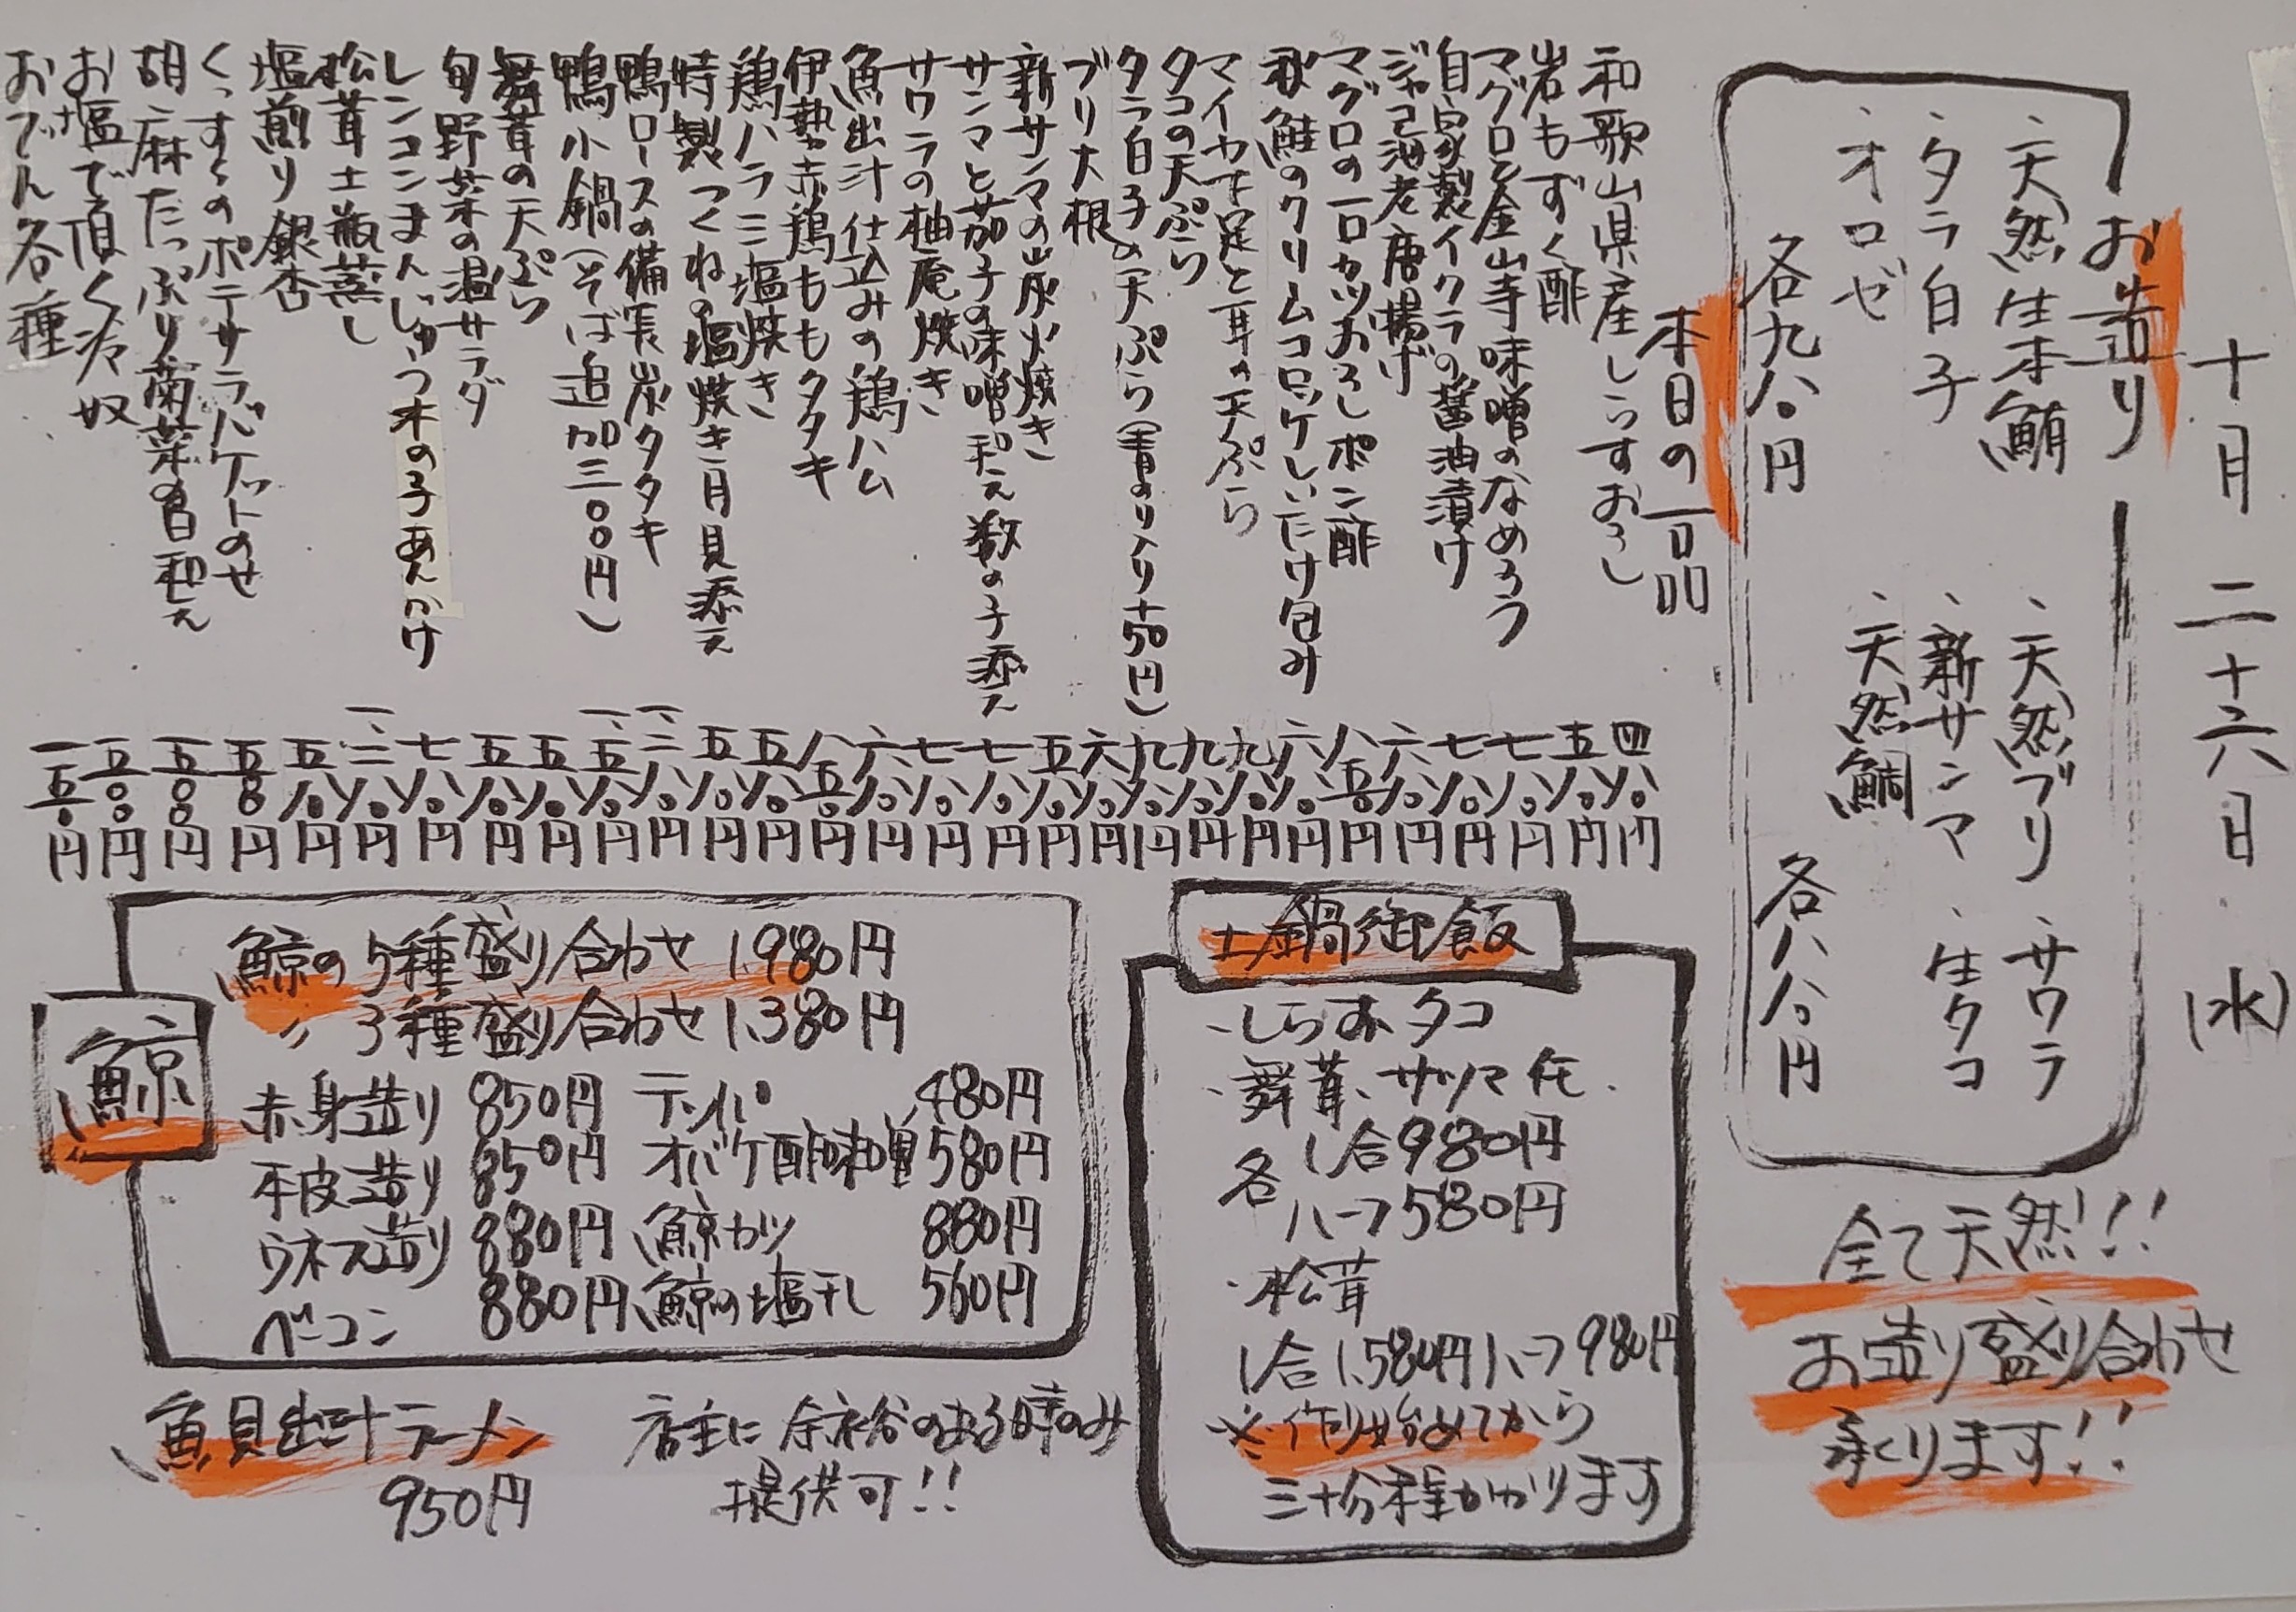 十月二十六日(水)
お造り
、天然生本鮪
、タラ白子
、オロゼ
各九八〇円
、天然ブリ、サワラ
、新サンマ、生タコ
、天然鯛
各八八〇円
全て天然!!
お造り盛り合わせ
承ります!!
本日の一品
和歌山県産しらすおろし 四八〇円
岩もずく酢 五八〇円
マグロと金山寺味噌のなめろう 七八〇円
自家製イクラの醤油漬け 七八〇円
ジャコ海老唐揚げ 六八〇円
マグロの一口カツおろしポン酢 八五〇円
秋鮭のクリームコロッケしいたけ包み 六八〇円
マイカ下足と耳の天ぷら 九八〇円
タコの天ぷら 九八〇円
タラ白子の天ぷら(青のり入り+50円) 九八〇円
ブリ大根 六八〇円
新サンマの炭火焼き 五八〇円
サンマと茄子の味噌和え数の子添え 七八〇円
サワラの柚庵焼き 七八〇円
魚出汁仕込みの鶏ハム 六八〇円
伊勢赤鶏ももタタキ 八五〇円
鶏ハラミ塩焼き 五八〇円
特製つくねの塩焼き月見添え 五八〇円
鴨ロースの備長炭タタキ 一、二八〇円
鴨小鍋(そば追加三〇〇円) 一、五八〇円
舞茸の天ぷら 五八〇円
旬野菜の温サラダ 五八〇円
レンコンまんじゅう木の子あんかけ 七八〇円
松茸土瓶蒸し 一、三八〇円
塩煎り銀杏 五八〇円
くっすんのポテサラバゲットのせ 五〇〇円
胡麻たっぷり菊菜の白和え 五〇〇円
お塩で頂く冷奴 五〇〇円
おでん各種 一五〇円
土鍋御飯
・しらす、タコ
・舞茸、サツマ芋
各 1合980円
ハーフ580円
・松茸
1合1,580円ハーフ980円
※作り始めてから
三十分程かかります
鯨
鯨の5種盛り合わせ 1,980円
〃 3種盛り合わせ 1,380円
赤身造り 850円 テッパ 480円
本皮造り 850円 オバケ酢味噌 580円
ウネス造り 880円 鯨カツ 880円
ベーコン 880円 鯨の塩干し 560円
魚貝出汁ラーメン
950円
店主に余裕のある時のみ
提供可!!